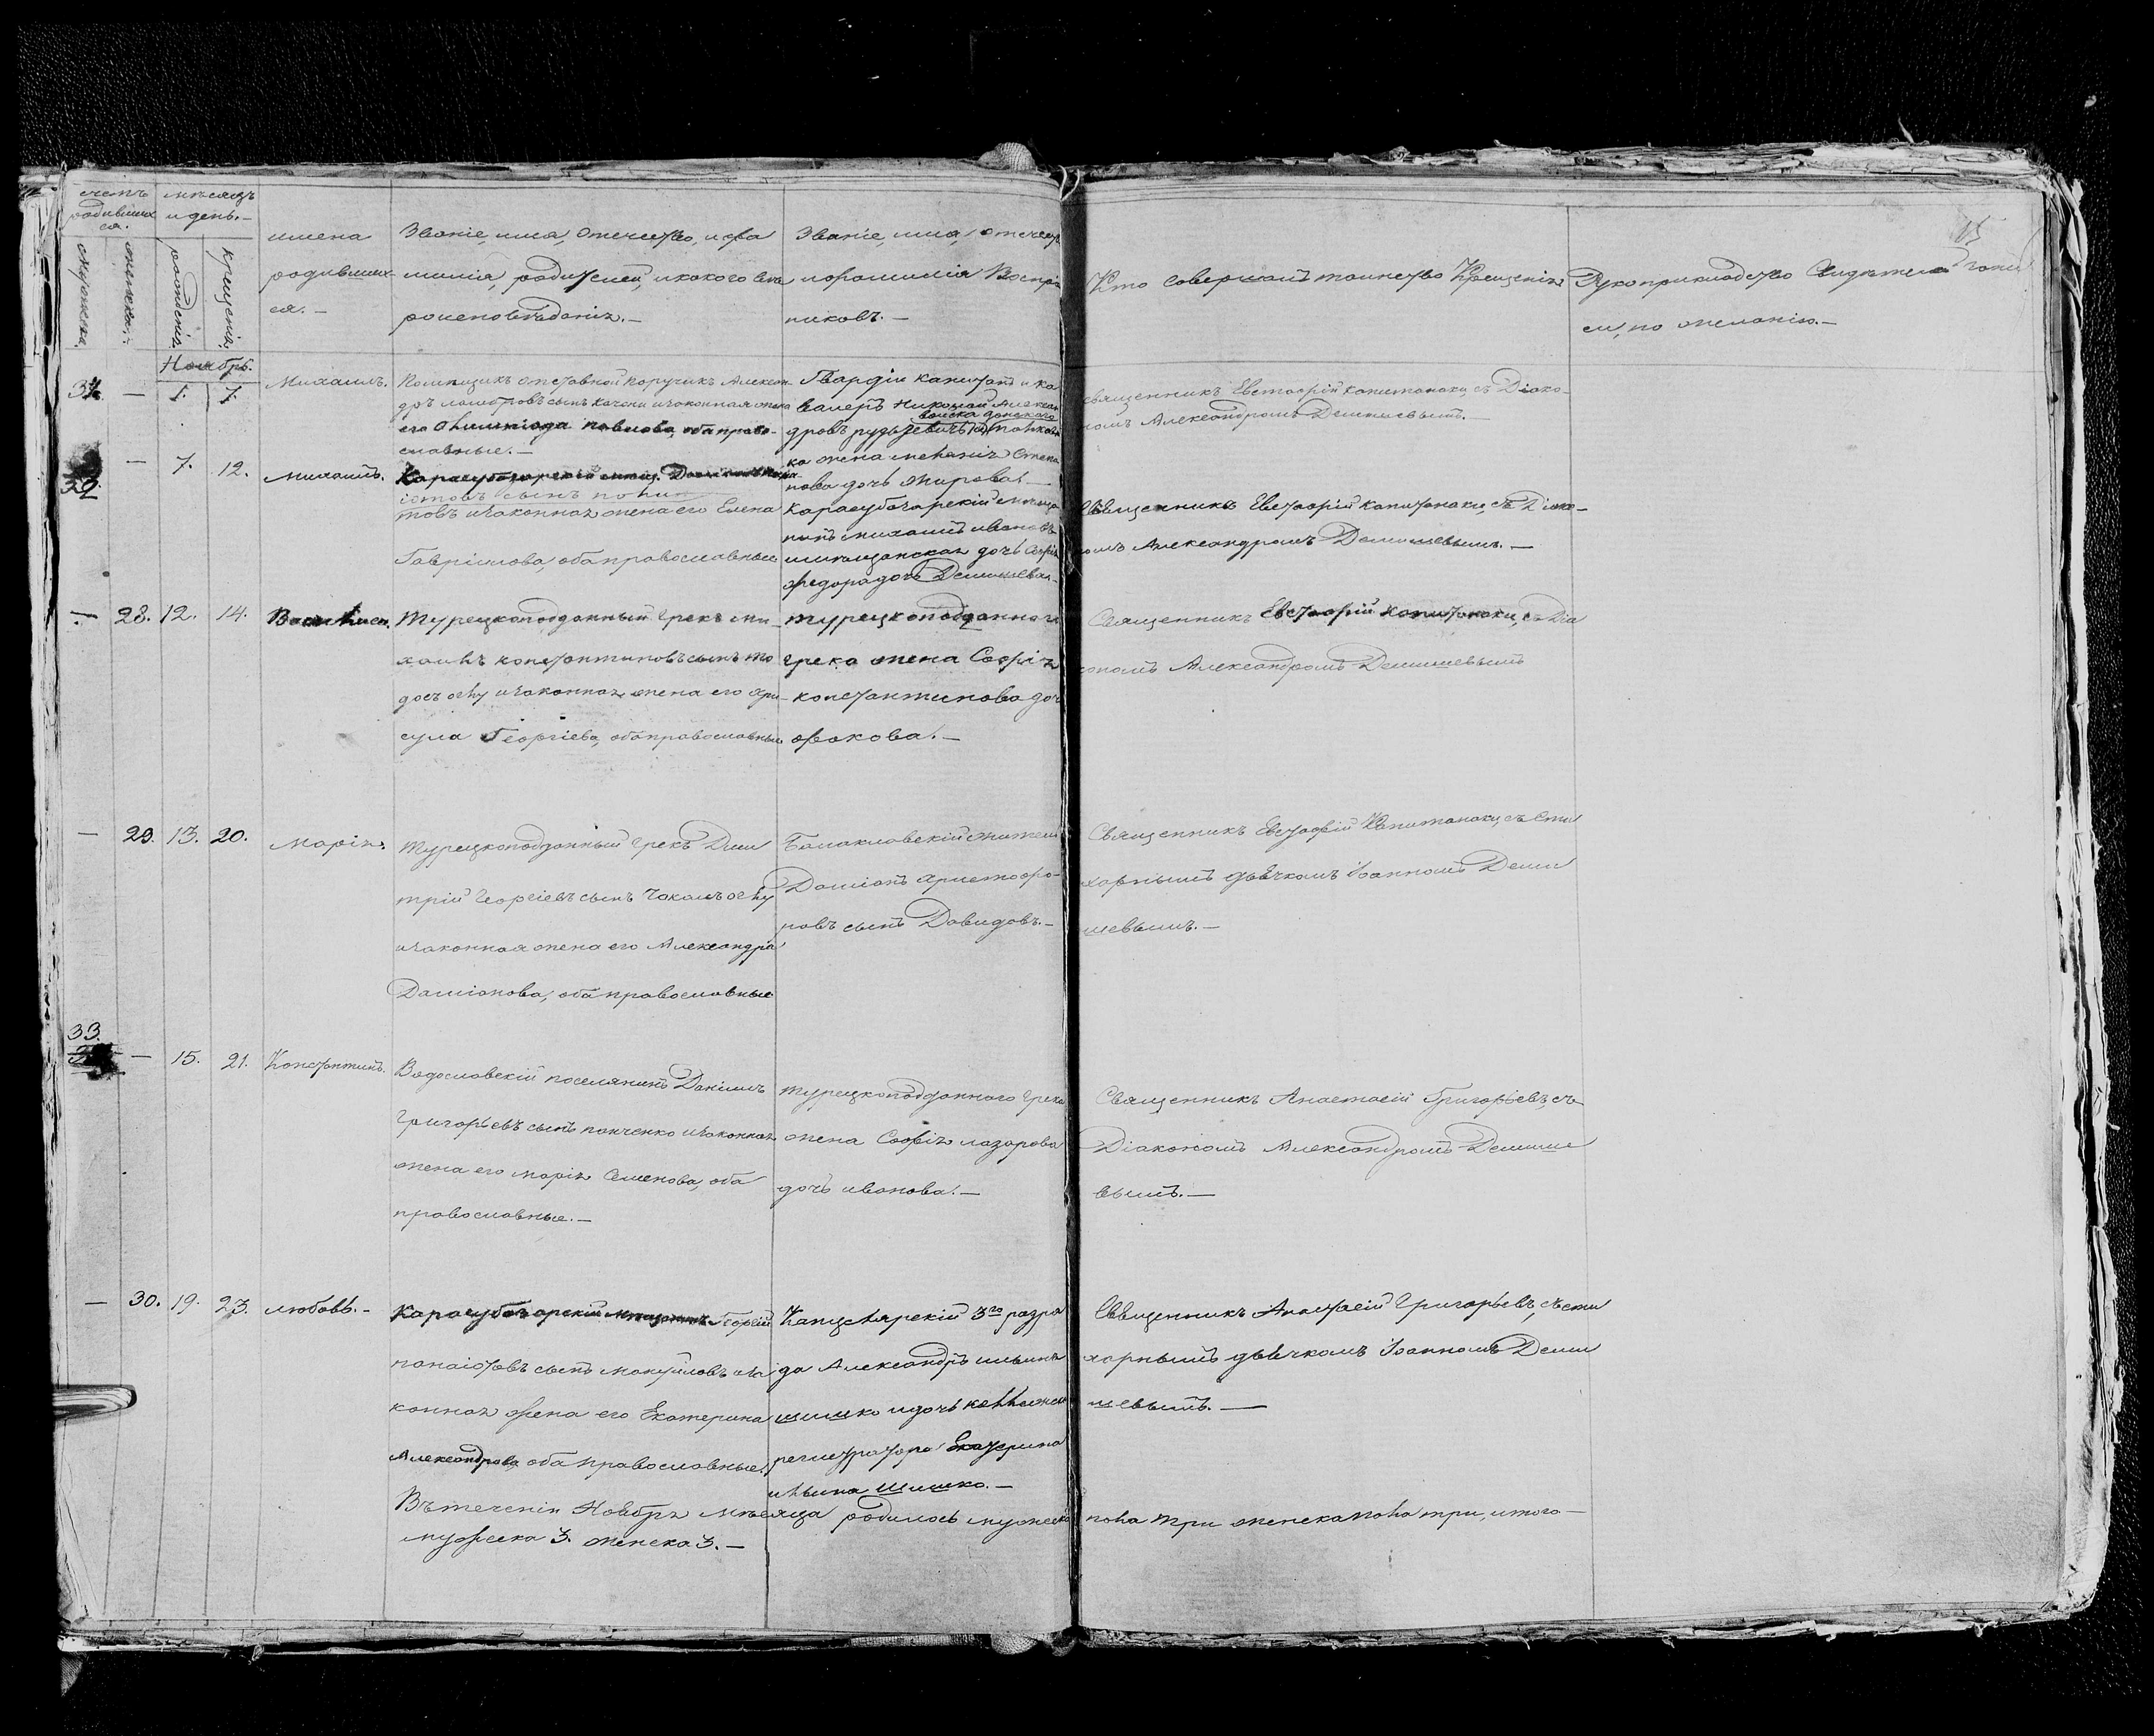 счетъ
родивших
ся.
мѣсяцъ
и день.—
мужеска.
женска.
рожденія
крещенія
имена
родивших
ся.—
Званіе, имя, Отчество, и фа
милія, родителей, и какого вѣ
роисповѣданія.—
Званіе, имя, отчест
и фамилія Воспрі
никовъ.—
Кто совершалъ таинство Крещенія
Рукоприкладство Свидѣтелей
ли, по желанію.—
15
Ноябрь.
31.
—
1.
7.
Михаилъ.
Помѣщикъ отставной поручикъ Алексан
дръ сынъ Качони и законная жена
его Павлова, оба право-
славные.—
Гвардіи Капитанъ и ка
валеръ Николай Алексан
войска донскаго
дровъ
ка жена Степа
нова дочь Жирова.—
Священникъ Евстафій Капитанаки, съ Діако-
номъ Александромъ Демишевымъ.
32
—
7.
12.
Михаилъ.
Карасубазарскій мѣщ.
товъ и законная жена его Елена
Гавріилова, оба православные
Карасубазарскій мѣща
нинъ Михаилъ Ивановъ
и мѣщанская дочь Софія
Федора дочь Демишева.—
Священникъ Евстафій Капитанаки, съ Діако-
номъ Александромъ Демишевымъ.—
—
28.
12.
14.
Василиса.
Турецкоподданный грекъ Ми-
хаилъ Константиновъ сынъ То
досъ оглу и законная жена его Хри-
сула Георгіева, оба православные
Турецкоподданнаго
грека жена Софія
Константинова доч
Фокова.—
Священникъ Евстафій Капитанаки, съ Діа
кономъ Александромъ Демишевымъ
—
29.
13.
20.
Марія.
Турецкоподданный грекъ Дми
трій Георгіевъ сынъ оглу
и законная жена его Александра
Даміанова, оба православные
Балаклавскій житель
Даміанъ Аристофа-
новъ сынъ Давидовъ.—
Священникъ Евстафій Капитанаки, съ Сти
харнымъ дьячкомъ Іоанномъ Деми
шевымъ.—
33.
—
15.
21.
Константинъ.
Богословскій поселянинъ Даніилъ
Григорьевъ сынъ Панченко и законная
жена его Марія Семенова, оба
православные.—
Турецкоподданнаго Грека
жена Софія Лазарова
дочь Иванова.—
Священникъ Анастасій Григорьевъ, съ
Діакономъ Александромъ Демише
вымъ.—
—
30.
19.
23.
Любовь.—
Карасубазарскій мѣщанинъ Георгій
Панаіотовъ сынъ Мануйловъ и за
конная жена его Екатерина
Александрова, оба православные.
Канцелярскій 3го разря
да Александръ Ильинъ
Шишко и дочь коллежск
регистратора Екатерина
Ильина Шишко.—
Священникъ Анастасій Григорьевъ, съ сти
харнымъ дьячкомъ Іоанномъ Деми
шевымъ.—
Въ теченіи Ноября мѣсяца родилось мужеска пола три женска пола три, итого—
мужеска 3. женска 3.—